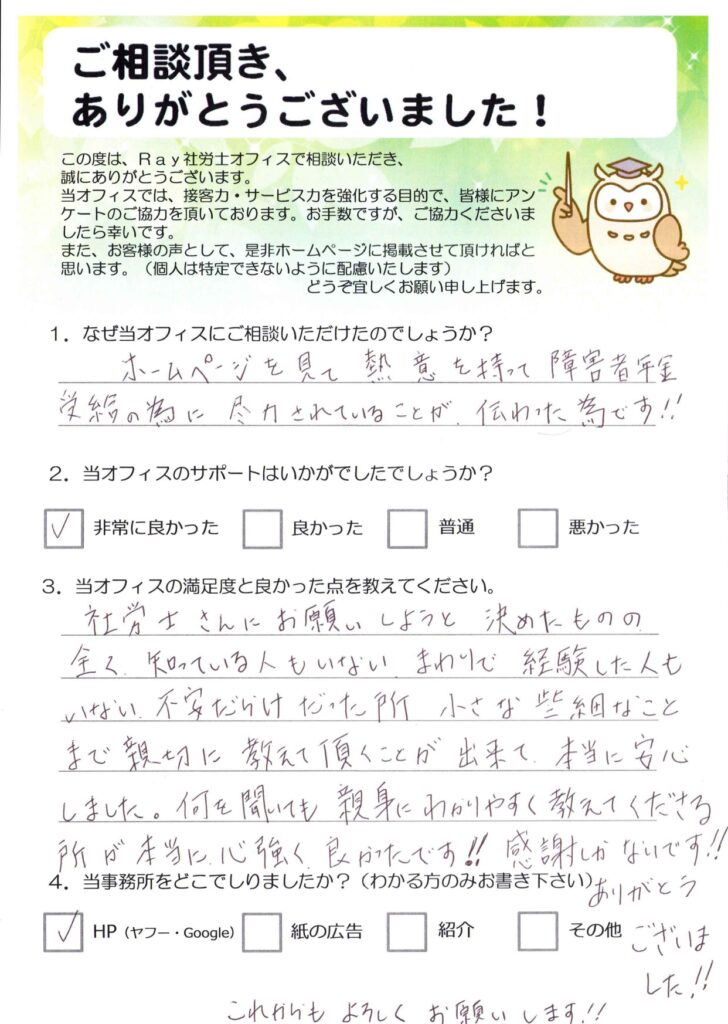 ご相談頂き、
ありがとうございました！
この度は、Ｒａｙ社労士オフィスで相談いただき、
誠にありがとうございます。
当オフィスでは、接客力・サービス力を強化する目的で、皆様にアン
ケートのご協力を頂いております。お手数ですが、ご協力くださいま
したら幸いです。
また、お客様の声として、是非ホームページに掲載させて頂ければと
思います。（個人は特定できないように配慮いたします）
どうぞ宜しくお願い申し上げます。
１．なぜ当オフィスにご相談いただけたのでしょうか？
ホームページを見て 熱意を持って 障害者年金
受給の為に 尽力されていることが、伝わった為です!!
２．当オフィスのサポートはいかがでしたでしょうか？
✓ 非常に良かった 良かった 普通 悪かった
３．当オフィスの満足度と良かった点を教えてください。
社労士さんにお願いしようと 決めたものの
全く、知っている人もいない、まわりで 経験した人も
いない、不安だらけだった所 小さな些細なこと
まで親切に 教えて頂くことが出来て、本当に安心
しました。何を聞いても 親身にわかりやすく教えてくださる
所が本当に、心強く、良かったです!! 感謝しかないです!!
４．当事務所をどこでしりましたか？（わかる方のみお書き下さい）
ありがとう
✓ HP（ヤフー・Google） 紙の広告 紹介 その他
ございま
した!!
これからも よろしく お願いします!!